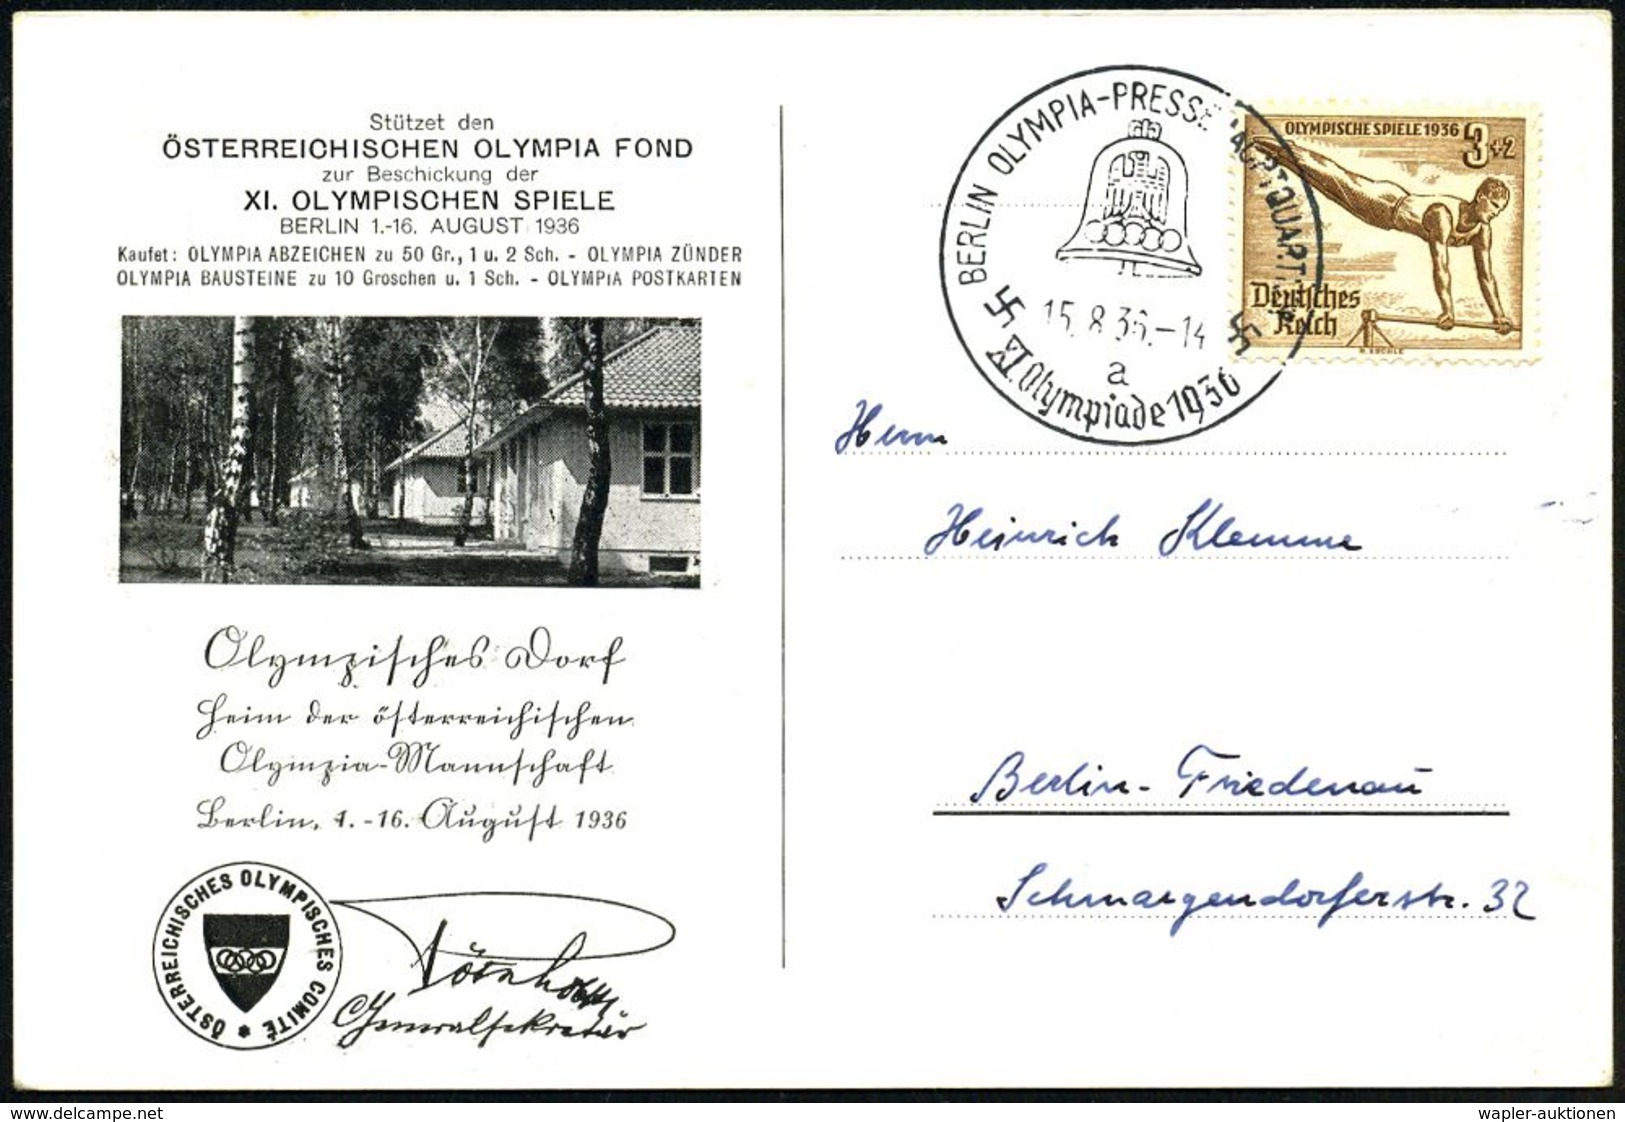 Stützet den
ÖSTERREICHISCHEN OLYMPIA FOND
zur Beschickung der
XI. OLYMPISCHEN SPIELE
BERLIN 1.-16. AUGUST 1936
Kaufet: OLYMPIA ABZEICHEN zu 50 Gr., 1 u. 2 Sch. - OLYMPIA ZÜNDER
OLYMPIA BAUSTEINE zu 10 Groschen u. 1 Sch. - OLYMPIA POSTKARTEN
Olympisches Dorf
Heim der österreichischen
Olympia-Mannschaft
Berlin, 1.-16. August 1936
ÖSTERREICHISCHES OLYMPISCHES COMITÉ *
Generalsekretär
BERLIN OLYMPIA-PRESSE HAUPTQUART.
15.8.36.-14
a
XI. Olympiade 1936
OLYMPISCHE SPIELE 1936 3+2
Deutsches
Reich
Herrn
Heinrich Klemme
Berlin-Friedenau
Schmargendorferstr. 32
delcampe.net
wapler-auktionen